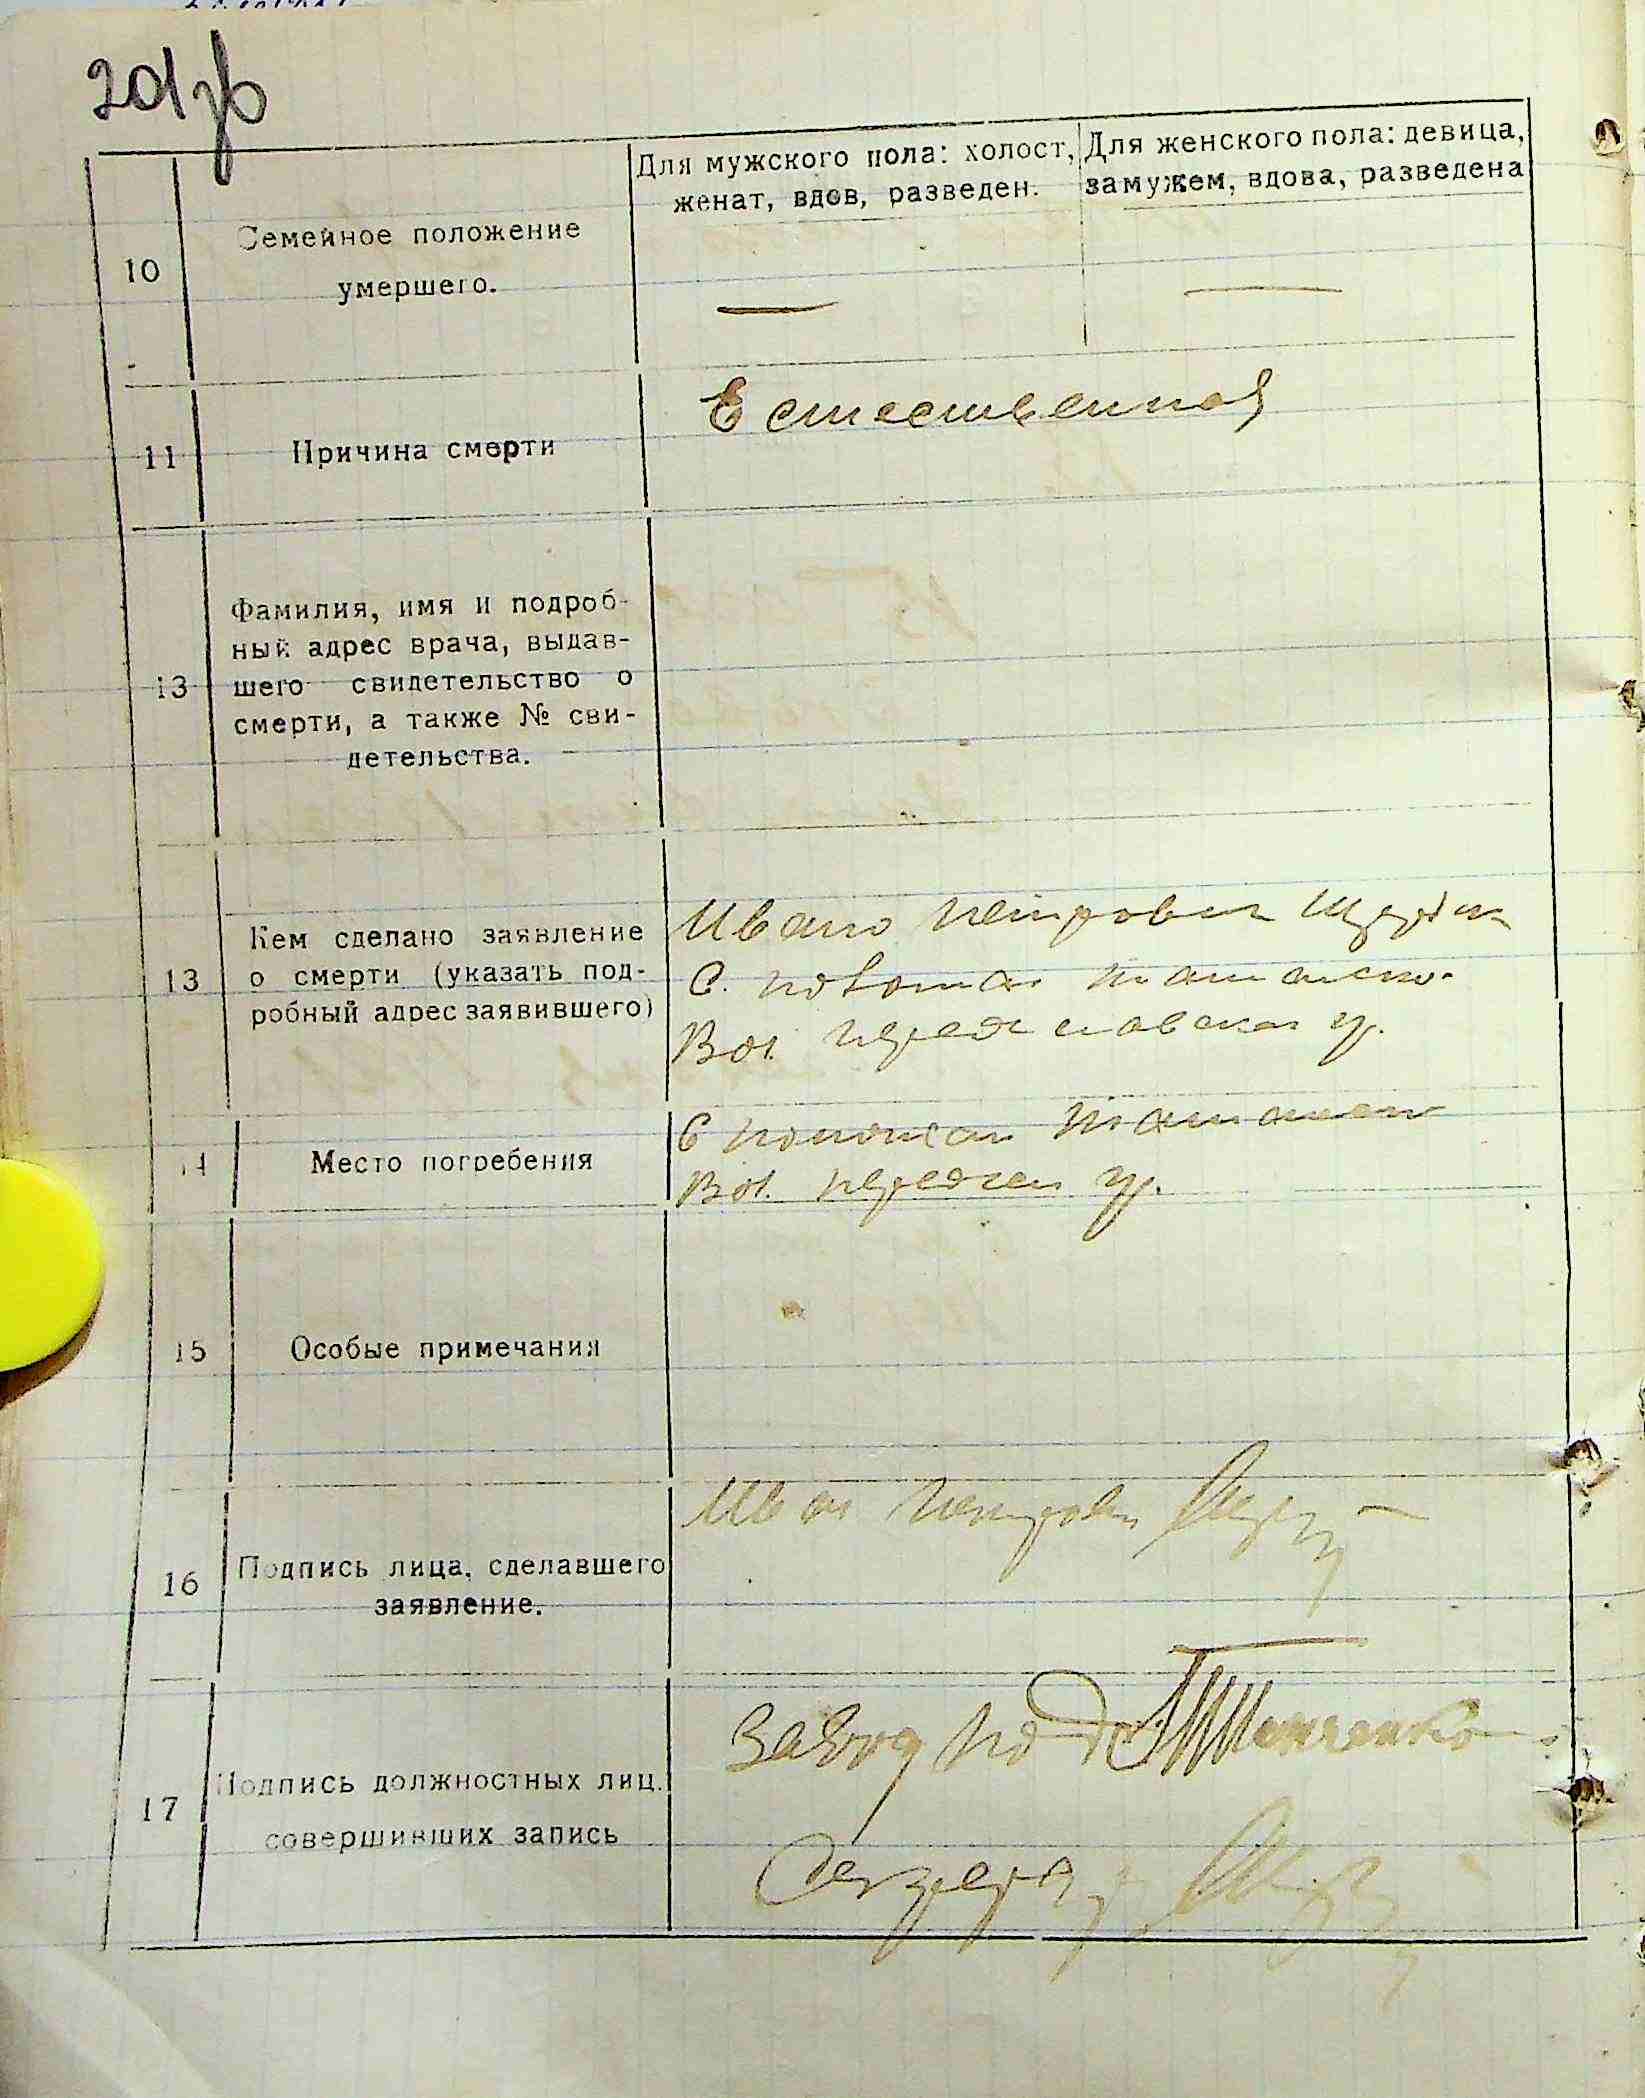 201зв
Для мужского пола: холост,
женат, вдов, разведен.
Для женского пола: девица,
замужем, вдова, разведена
10
Семейное положение
умершего.
—
—
11
Причина смерти
Естественная
13
Фамилия, имя и подроб-
ный адрес врача, выдав-
шего свидетельство о
смерти, а также № сви-
детельства.
13
Кем сделано заявление
о смерти (указать под-
робный адрес заявившего)
Иван Петрович
С.
Вол. у.
14
Место погребения
С
Вол. у.
15
Особые примечания
16
Подпись лица, сделавшего
заявление.
Иван Петрович
17
Подпись должностных лиц.
совершивших запись
Завод
Секрета